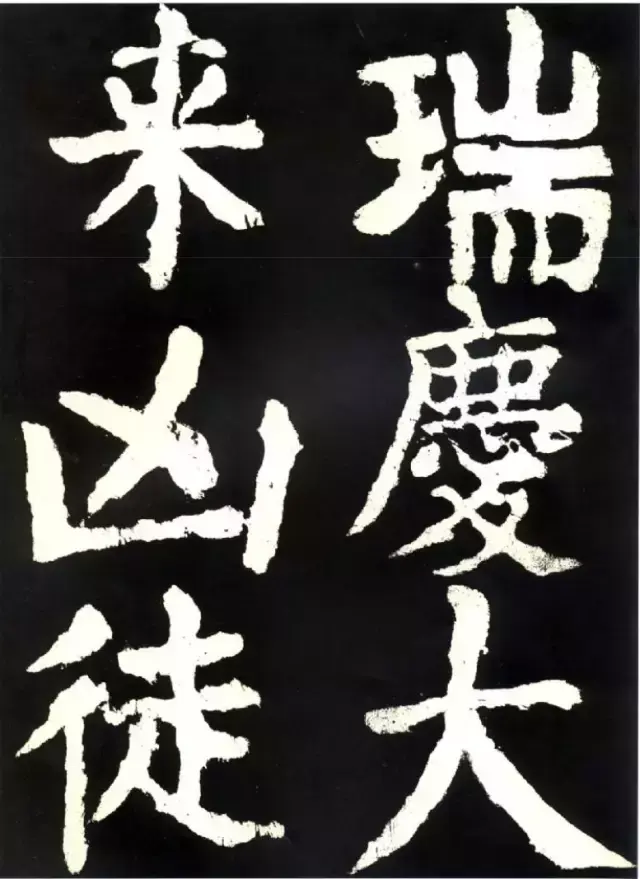 瑞慶大
来凶徒